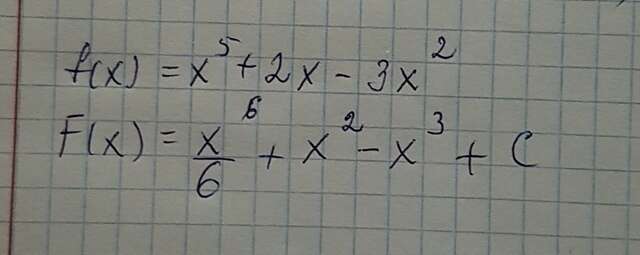 f(x) = x⁵ + 2x - 3x²
F(x) = x⁶/6 + x² - x³ + C